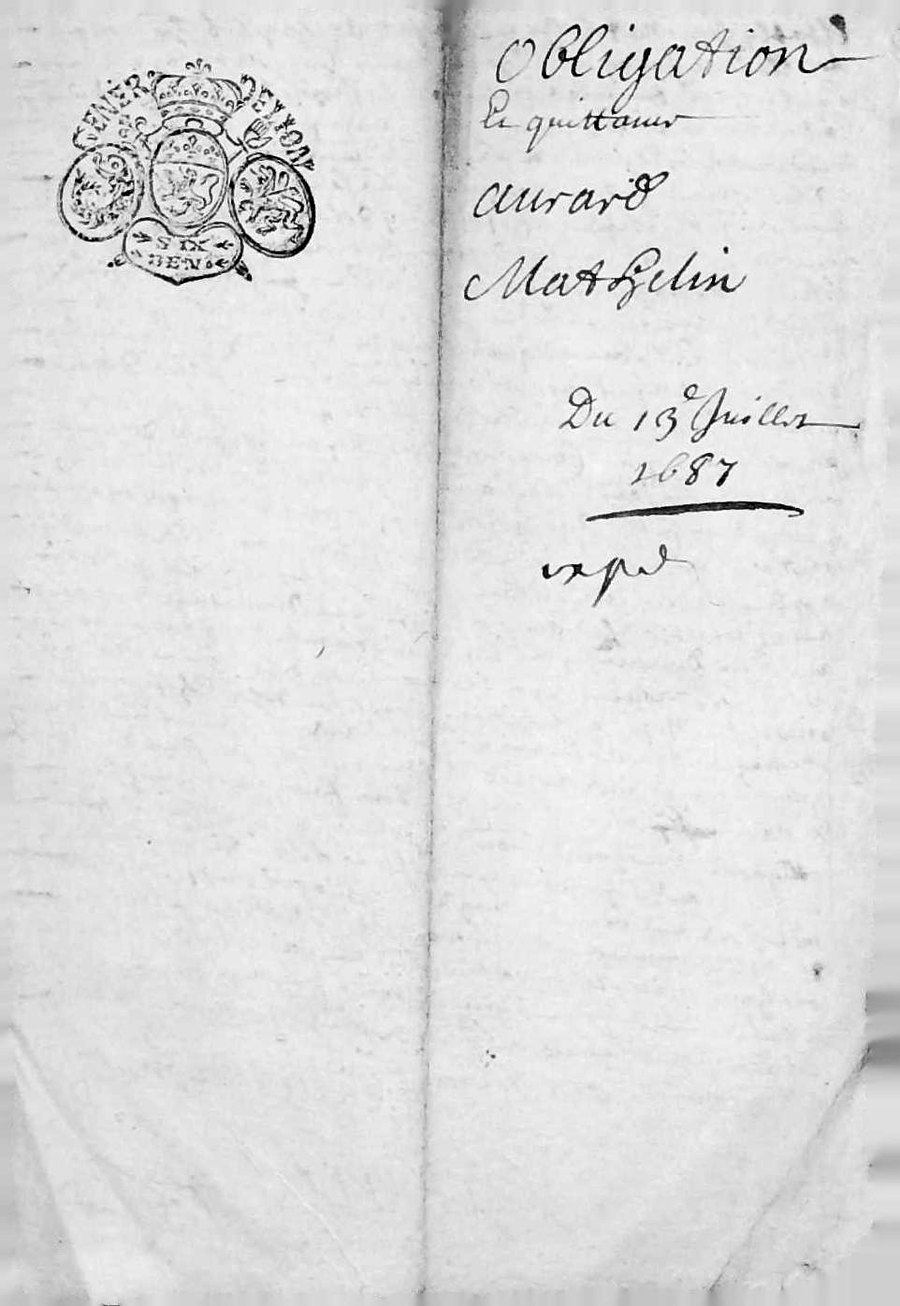 GENER DE LYON
SIX
DEN
Obligation
Et quittance
Aurard
Mathelin
Du 13e Juillet
1687
expd